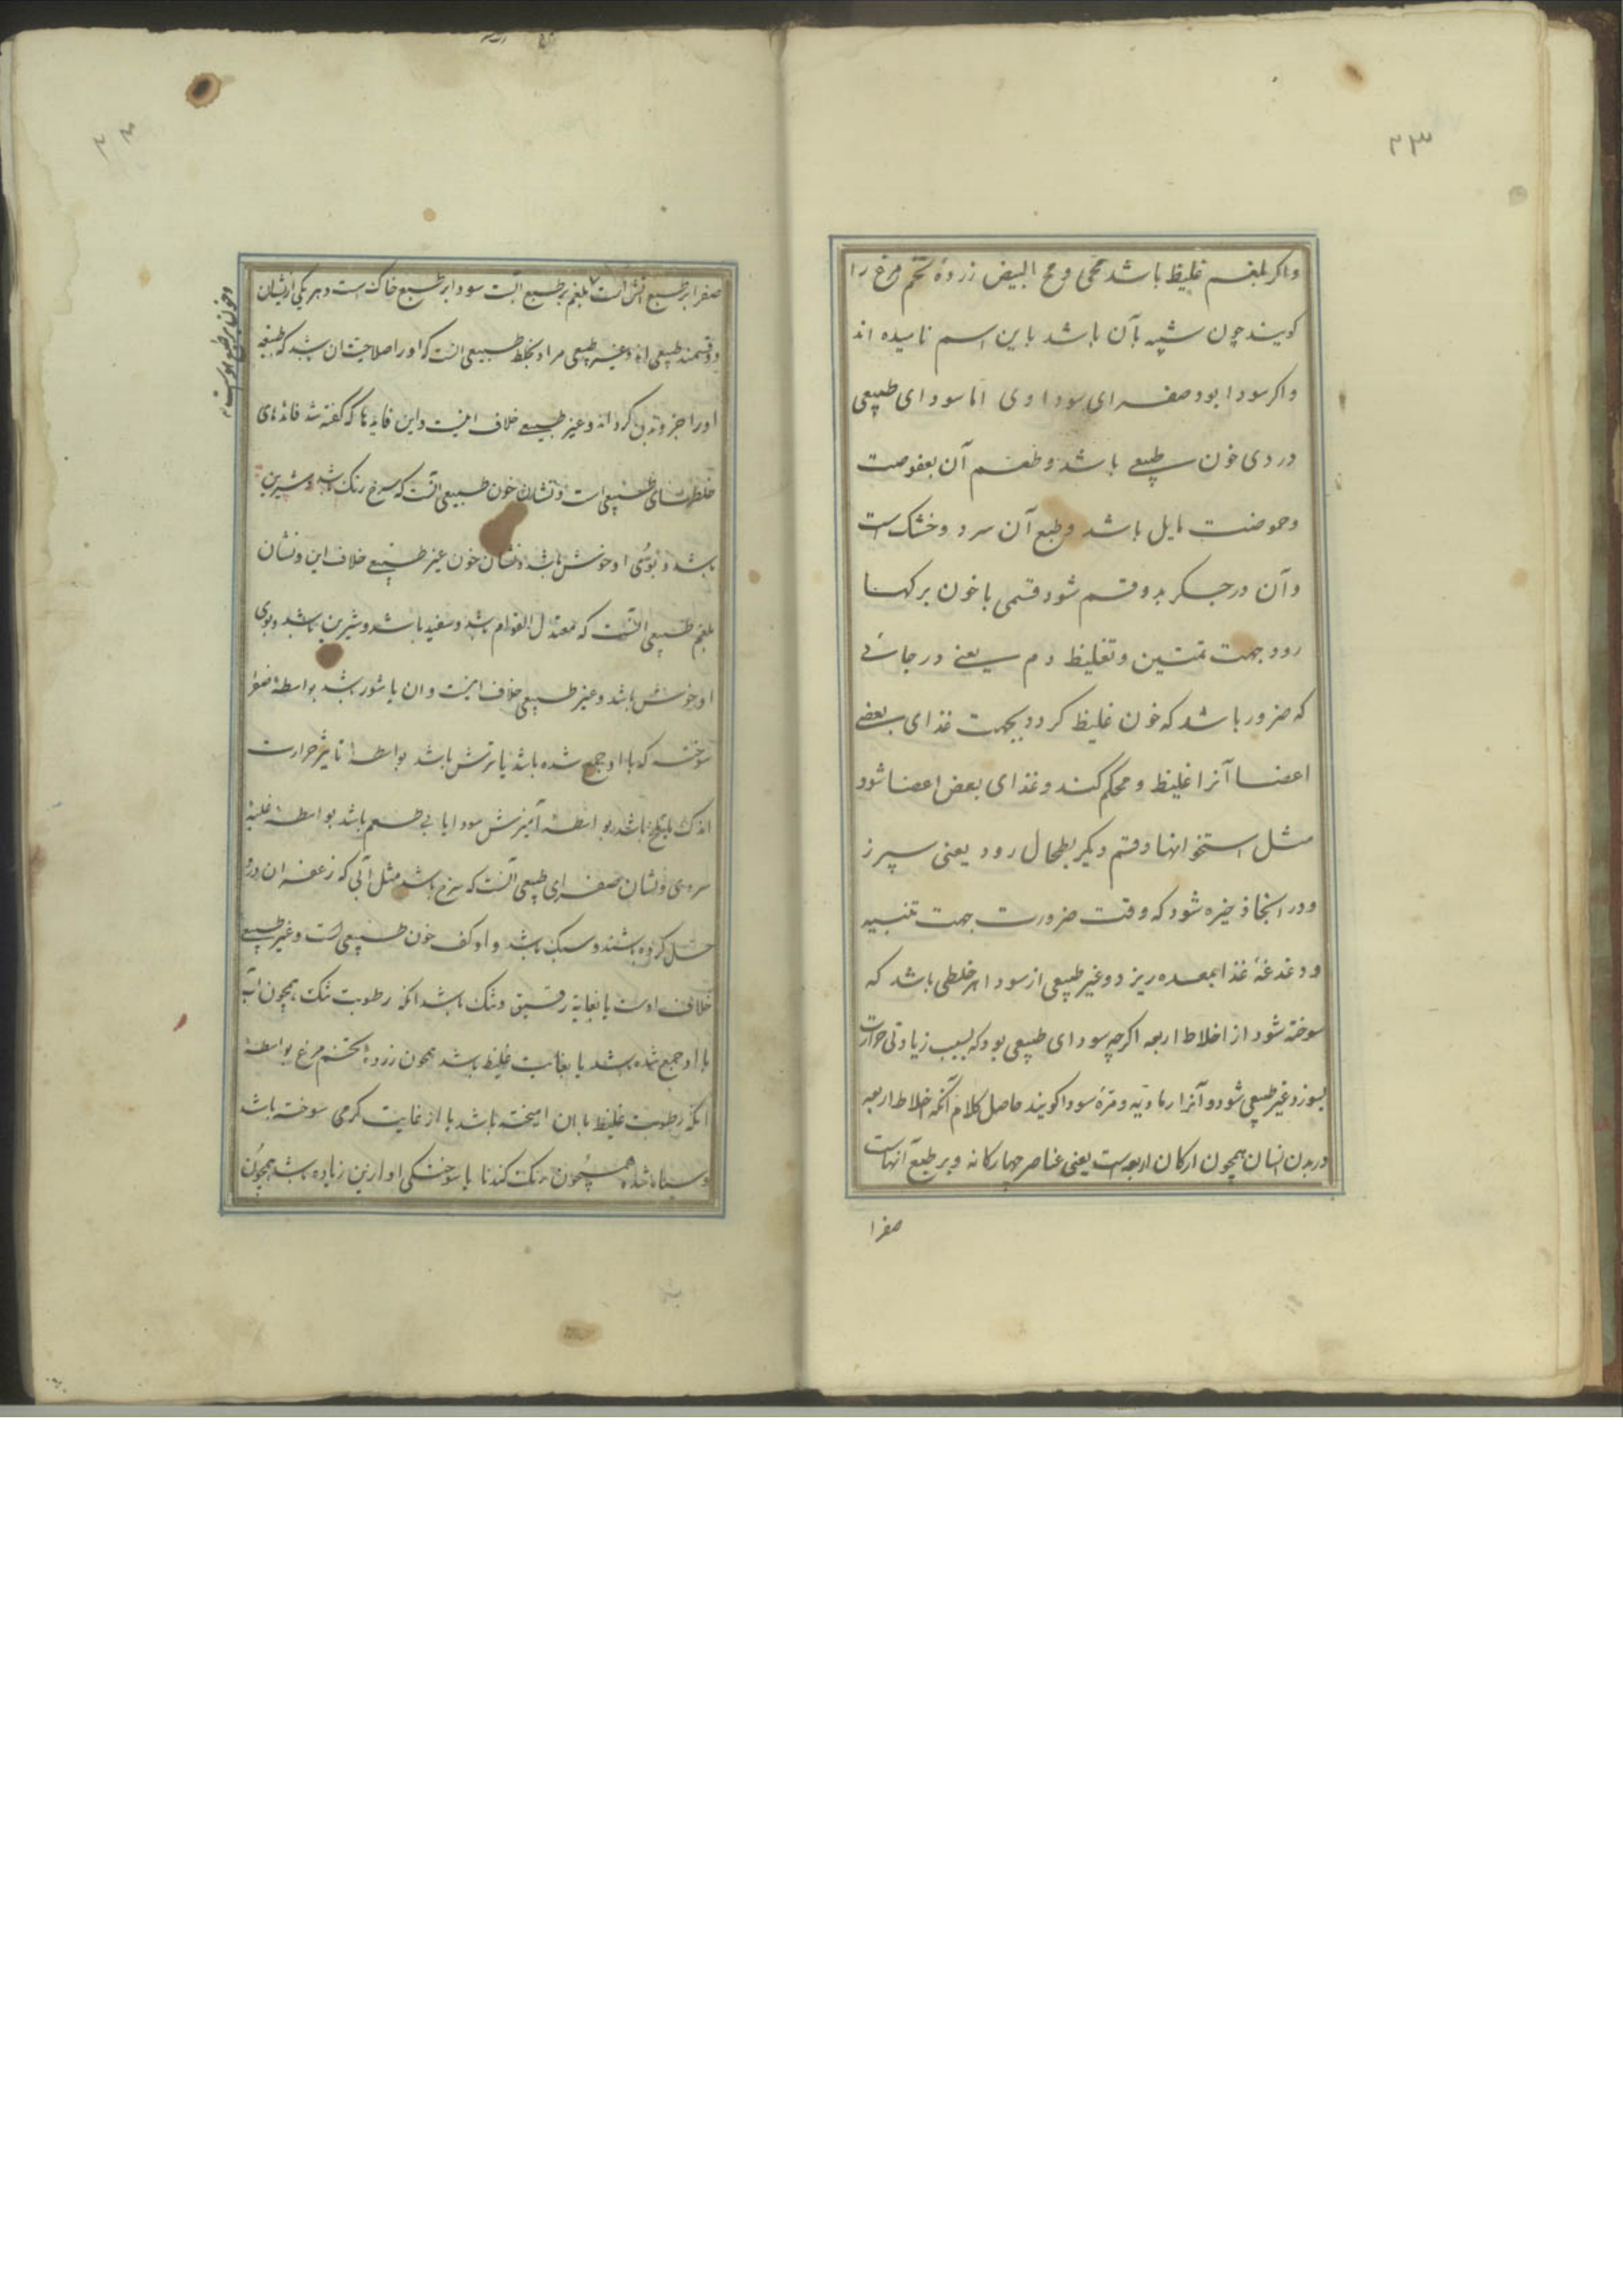 ۲۳
واکر بلغم غلیظ باشد محی و مح البیض زردهٔ تخم مرغ را
کویند چون شبیه بآن باشد باین اسم نامیده اند
واکر سودا بود صفرای سوداوی اما سودای طبیعی
دردی خون طبیعی باشد وطعم آن بعفوصت
وحموضت مایل باشد وطبع آن سرد وخشک است
وآن در جکر بدو قسم شود قسمی با خون برکها
رود جهت تمتین وتغلیظ دم یعنی در جائی
که ضرور باشد که خون غلیظ کردد بجهت غذای بعضے
اعضا آنرا غلیظ ومحکم کند وغذای بعض اعضا شود
مثل استخوانها وقسم دیکر بطحال رود یعنی سپرز
ودر انجا ذخیره شود که وقت ضرورت جهت تنبیه
ودغدغهٔ غذا بمعده ریزد وغیر طبیعی از سودا هر خلطی باشد که
سوخته شود از اخلاط اربعه اکرچه سودای طبیعی بود که بسبب زیادتی حرارت
بسوزد وغیر طبیعی شود وآنرا رمادیه ومرهٔ سودا کویند حاصل کلام آنکه اخلاط اربعه
در بدن انسان همچون ارکان اربعه است یعنی عناصر چهارکانه وبر طبع آنهاست
صفرا
صفرا بر طبع آتش است بلغم بر طبع آبست سودا بر طبع خاک است وهر یکی ازیشان
وخون بر طبع هواست
دو قسمند طبیعی اند وغیر طبیعی مراد بخلط طبیعی آنست که او را صلاحیت آن باشد که طبیعه
او را جزو بدن کرداند وغیر طبیعے خلاف اینست واین فایدها که کفته شد فائدهای
خلطهای طبیعی است ونشان خون طبیعی آنست که سرخ رنک باشد وشیرین
باشد وبوی او خوش باشد ونشان خون غیر طبیعے خلاف این ونشان
بلغم طبیعی آنست که معتدل القوام باشد وسفید باشد وشیرین باشد وبوی
او خوش باشد وغیر طبیعی خلاف اینست وان یا شور باشد بواسطهٔ صفرا
سوخته که با او جمع شده باشد یا ترش باشد بواسطهٔ تاثیر حرارت
اندک یا تلخ باشد بواسطهٔ آمیزش سودا یا بی طعم باشد بواسطهٔ غلبهٔ
سردی ونشان صفرای طبیعی آنست که سرخ باشد مثل آبی که زعفران درو
حل کرده باشند وسبک باشد واو کف خون طبیعی است وغیر طبیعے
خلاف اوست یا بغایة رقیق وتنک باشد انکه رطوبت تنک همچون آب
با او جمع شده باشد یا بغایت غلیظ باشد همچون زردهٔ تخم مرغ بواسطهٔ
انکه رطوبت غلیظ با ان امیخته باشد یا از غایت کرمی سوخته باشد
وسیاه شده همچون رنک کندنا یا سوختکی او ازین زیاده باشد همچون